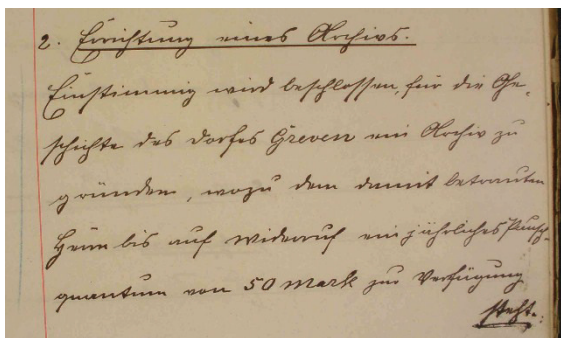 2. Errichtung eines Archivs.
Einstimmig wird beschlossen, für die Ge-
schichte des Dorfes Greven ein Archiv zu
gründen, wozu dem damit betrauten
Herrn bis auf Widerruf ein jährliches
quantum von 50 Mark zur Verfügung
steht.